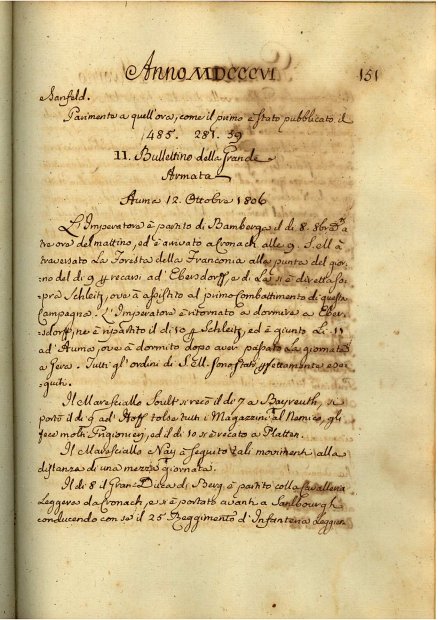 Anno MDCCCVI. 151
Sanfeld.
Parimente a quell'ora, come il primo è stato pubblicato il
485. 281. 39
II. Bullettino della Grande
Armata
Auma 12. Ottobre 1806
L'Imperatore è partito di Bamberga il dì 8. 8bre a
tre ore del mattino, ed è arrivato a Cronach alle 9. S. M. à
traversato la Foresta della Franconia alla punta del gior-
no del dì 9 recarsi ad Ebersdorff, e di là si è diretta so-
pra Schleitz, ove à assistito al primo combattimento di questa
Campagna. L'Imperatore è ritornato a dormire a Eber-
sdorff, ne è ripartito il dì 10 Schleitz, ed è giunto li 11
ad Auma, ove à dormito dopo aver passato la giornata
a Gera. Tutti gl'ordini di S. M. sono stati perfettamente ese-
guiti.
Il Maresciallo Soult si recò il dì 7 a Bayreuth, si
portò il dì 9 ad Hoff tolse tutti i Magazzini al Nemico, gli
fece molti Prigionieri, ed il dì 10 si è recato a Platten.
Il Maresciallo Ney à seguito tali movimenti alla
distanza di una mezza giornata.
Il dì 8 il Gran Duca di Berg è partito colla Cavalleria
Leggera da Cronach, e si è portato avanti a Saalbourgh
conducendo con se il 25 Reggimento d'Infanteria Leggera